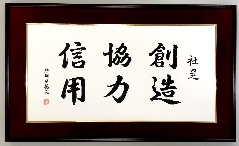 社是
創造
協力
信用